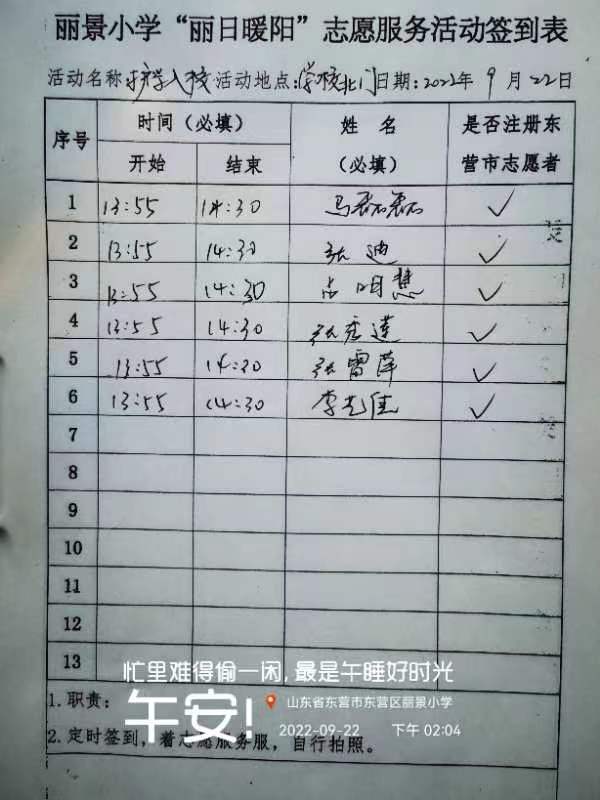 丽景小学“丽日暖阳”志愿服务活动签到表
活动名称:护学入校 活动地点:学校北门 日期:2022年 9 月 22日
序号 时间（必填） 姓 名（必填） 是否注册东营市志愿者
开始 结束
1 13:55 14:30 马磊磊 ✓
2 13:55 14:30 张迪 ✓
3 13:55 14:30 明慧 ✓
4 13:55 14:30 张 莲 ✓
5 13:55 14:30 张雷萍 ✓
6 13:55 14:30 李 佳 ✓
7
8
9
10
11
12
13
忙里难得偷一闲,最是午睡好时光
1.职责:
午安!
山东省东营市东营区丽景小学
2022-09-22 下午 02:04
2.定时签到，着志愿服务服，自行拍照。